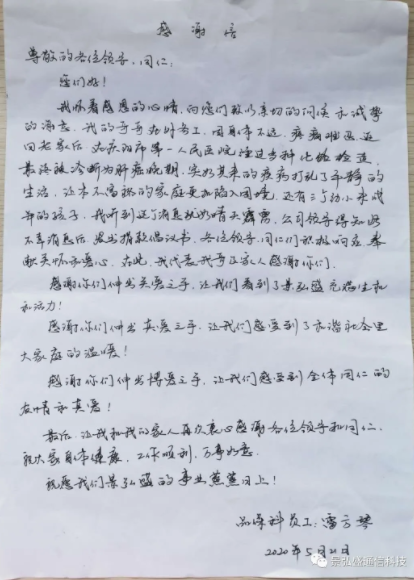 感谢信
尊敬的各位领导,同仁:
您们好!
我怀着感恩的心情,向您们致以亲切的问候和诚挚
的谢意。我的哥哥在外务工,因身体不适,疼痛难忍返
回老家后,在岳阳市第一人民医院经过各种化验检查,
最终被诊断为肝癌晚期,突如其来的疾病打乱了平静的
生活,让本不富裕的家庭更加陷入困境,还有三个幼小未成
年的孩子,我听到这个消息犹如晴天霹雳,公司领导得知此
不幸消息后,发出捐款倡议书,各位领导,同仁们积极响应奉
献关怀和爱心,在此,我代表我哥及家人感谢你们。
感谢你们伸出关爱之手,让我们看到了景弘盛充满生机
和活力!
感谢你们伸出真爱之手,让我们感受到了和谐社会里
大家庭的温暖!
感谢你们伸出博爱之手,让我们感受到全体同仁的
友情和真爱!
最后,让我和我的家人再次衷心感谢各位领导和同仁,
祝大家身体健康,工作顺利,万事如意。
祝愿我们景弘盛的事业蒸蒸日上!
品保科员工:雷方琴
2020年5月21日
景弘盛通信科技